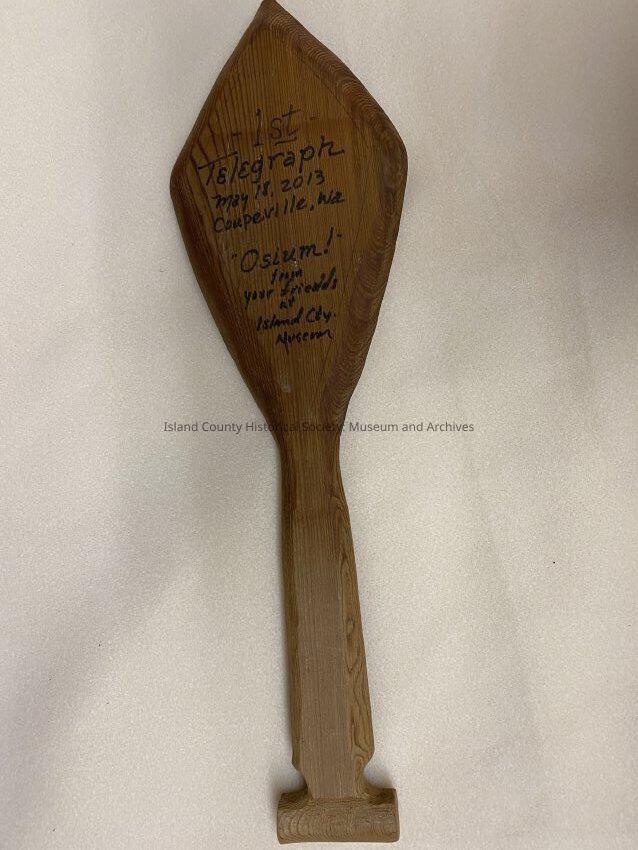 - 1st -
Telegraph
May 18, 2013
Coupeville, Wa
"Osium!"
from
your friends
at
Island Cty.
Museum
Island County Historical Society: Museum and Archives